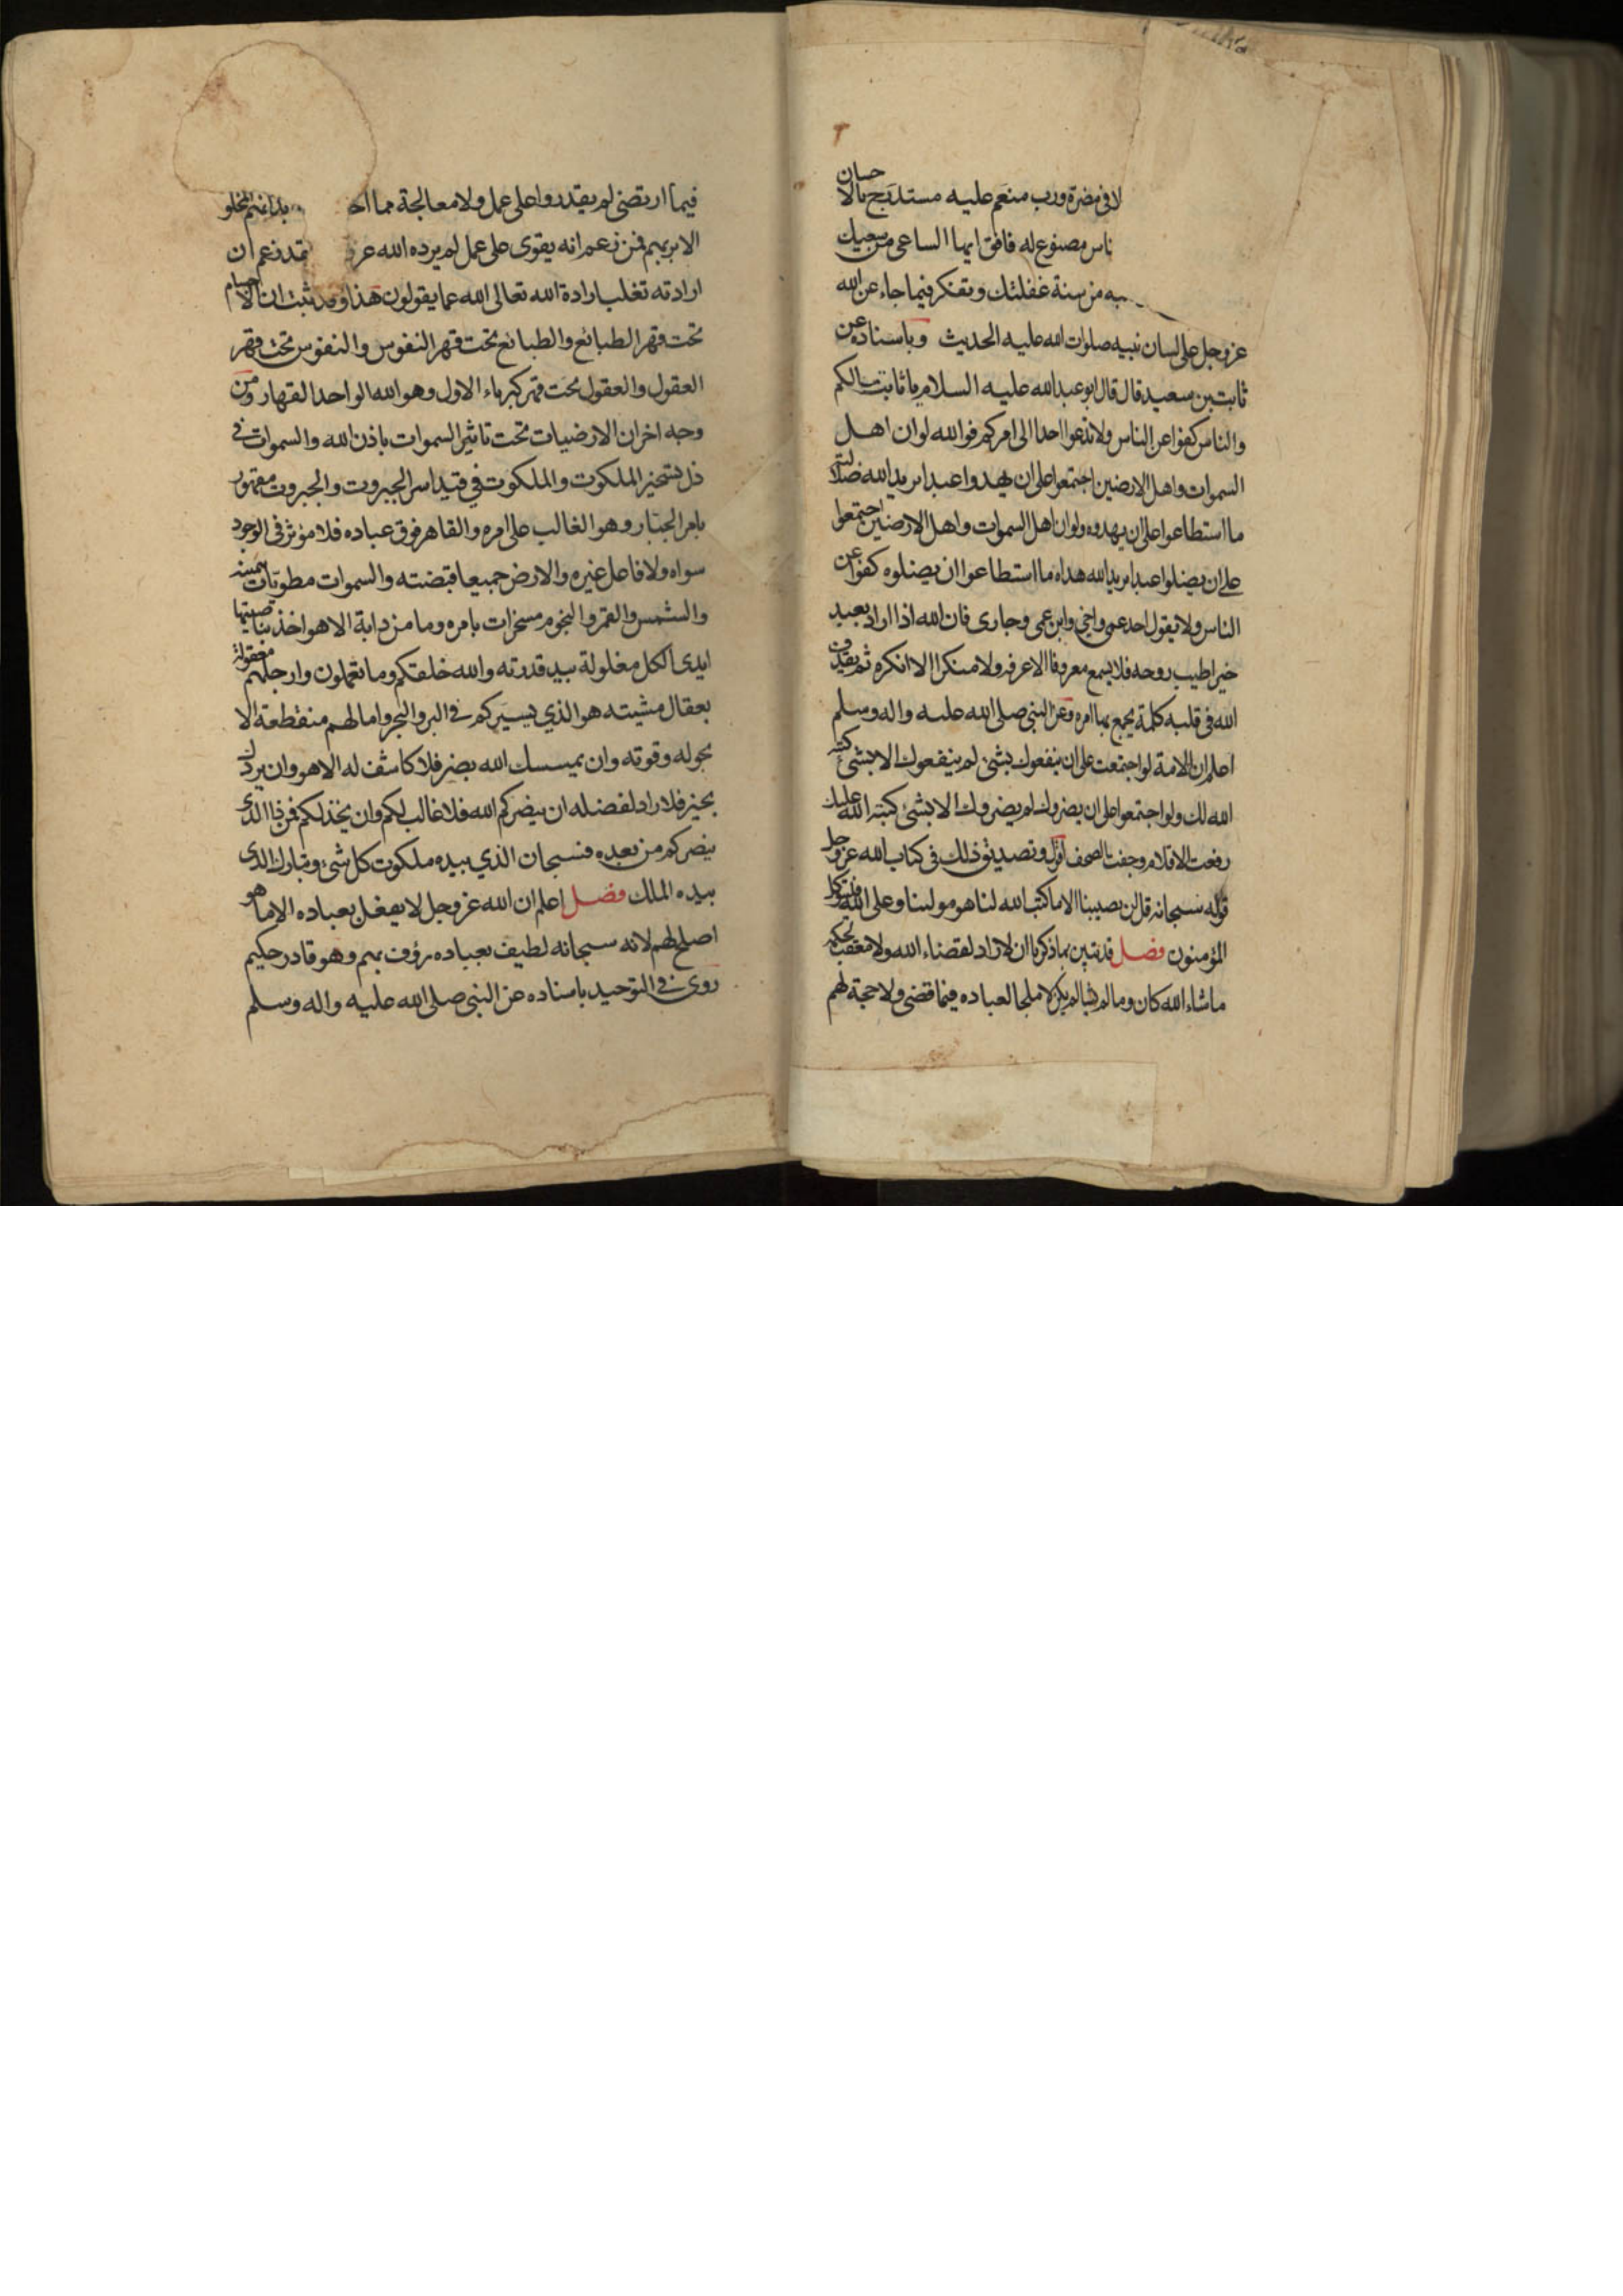 لا في مضرة ورب منعم عليه مستدرج بالاحسان
ناس مصنوع له فافق ايها الساعي من سعيك
من سنة غفلتك وتفكر فيما جاء عن الله
عز وجل على لسان نبيه صلوات الله عليه الحديث وباسناده عن
ثابت بن سعيد قال قال ابو عبد الله عليه السلام يا ثابت مالكم
والناس كفوا عن الناس ولا تدعوا احدا الى امركم فوالله لو ان اهل
السموات واهل الارضين اجتمعوا على ان يهدوا عبدا يريد الله ضلالته
ما استطاعوا على ان يهدوه ولو ان اهل السموات واهل الارضين اجتمعوا
على ان يضلوا عبدا يريد الله هداه ما استطاعوا ان يضلوه كفوا عن
الناس ولا يقول احد عمي واخي وابن عمي وجاري فان الله اذا اراد بعبد
خيرا طيب روحه فلا يسمع معروفا الا عرفه ولا منكرا الا انكره ثم يقذف
الله في قلبه كلمة يجمع بها امره وعن النبي صلى الله عليه واله وسلم
اعلم ان الامة لو اجتمعت على ان ينفعوك بشئ لم ينفعوك الا بشئ كتبه
الله لك ولو اجتمعوا على ان يضروك لم يضروك الا بشئ كتبه الله عليك
رفعت الاقلام وجفت الصحف اقول وتصديق ذلك في كتاب الله عز وجل
قوله سبحانه قل لن يصيبنا الا ما كتب الله لنا هو مولينا وعلى الله فليتوكل
المؤمنون فصل قد تبين بما ذكرنا ان لا راد لقضاء الله ولا معقب لحكمه
ما شاء الله كان وما لم يشا لم يكن لا ملجا لعباده فيما قضى ولا حجة لهم
فيما ارتضى لم يقدروا على عمل ولا معالجة مما
الا بربهم فمن زعم انه يقوى على عمل لم يرده الله عز فقد زعم ان
ارادته تغلب ارادة الله تعالى الله عما يقولون هذا وقد ثبت ان الاجسام
تحت قهر الطبائع والطبائع تحت قهر النفوس والنفوس تحت قهر
العقول والعقول تحت قهر كبرياء الاول وهو الله الواحد القهار ومن
وجه اخر ان الارضيات تحت تاثير السموات باذن الله والسموات في
ذل تسخير الملكوت والملكوت في قيد اسر الجبروت والجبروت مقهور
بامر الجبار وهو الغالب على امره والقاهر فوق عباده فلا مؤثر في الوجود
سواه ولا فاعل غيره والارض جميعا قبضته والسموات مطويات بيمينه
والشمس والقمر والنجوم مسخرات بامره وما من دابة الا هو اخذ بناصيتها
ايدي الكل مغلولة بيد قدرته والله خلقكم وما تعملون وارجلهم معقولة
بعقال مشيته هو الذي يسيركم في البر والبحر وامالهم منقطعة الا
بحوله وقوته وان يمسسك الله بضر فلا كاشف له الا هو وان يردك
بخير فلا راد لفضله ان ينصركم الله فلا غالب لكم وان يخذلكم فمن ذا الذي
ينصركم من بعده فسبحان الذي بيده ملكوت كل شئ وتبارك الذي
بيده الملك فصل اعلم ان الله عز وجل لا يفعل بعباده الا ما هو
اصلح لهم لانه سبحانه لطيف بعباده رؤف بهم وهو قادر حكيم
روى في التوحيد باسناده عن النبي صلى الله عليه واله وسلم